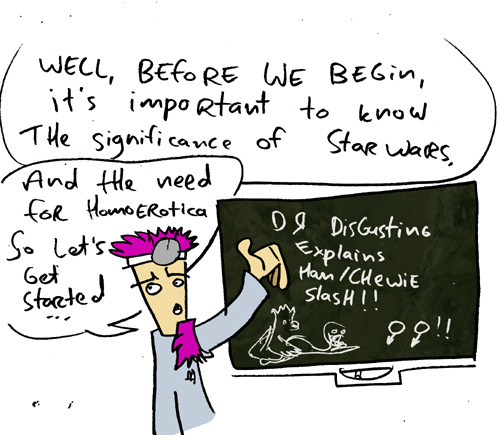 WELL, BEFORE WE BEGIN,
it's important to know
THE significance of STAR WARS.
And the need
for HomoEROTICA
So Let's
Get
Started
...
DR DisGusting
Explains
Han/CHEWIE
SlasH!!
♂♂!!